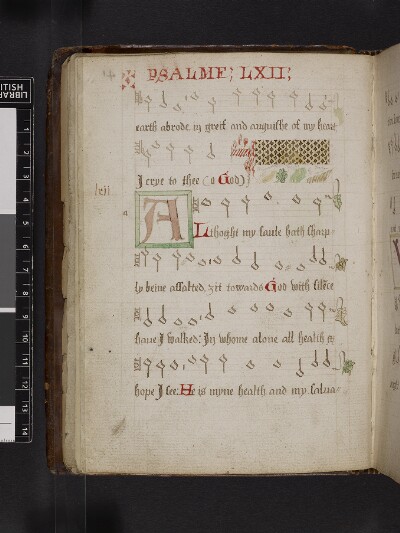 PSALME; LXII;
earth abrode in greif and anguishe of my heart
I crye to thee (o God)
lxii
A Lthoght my saule hath charp-
ly beine assalted, zit towards God with silēce
haue I walked: In whome alone all health &
hope I see: He is myne health and my salua-
BRITISH LIBRARY
1
2
3
4
5
6
7
8
9
10
11
12
13
14